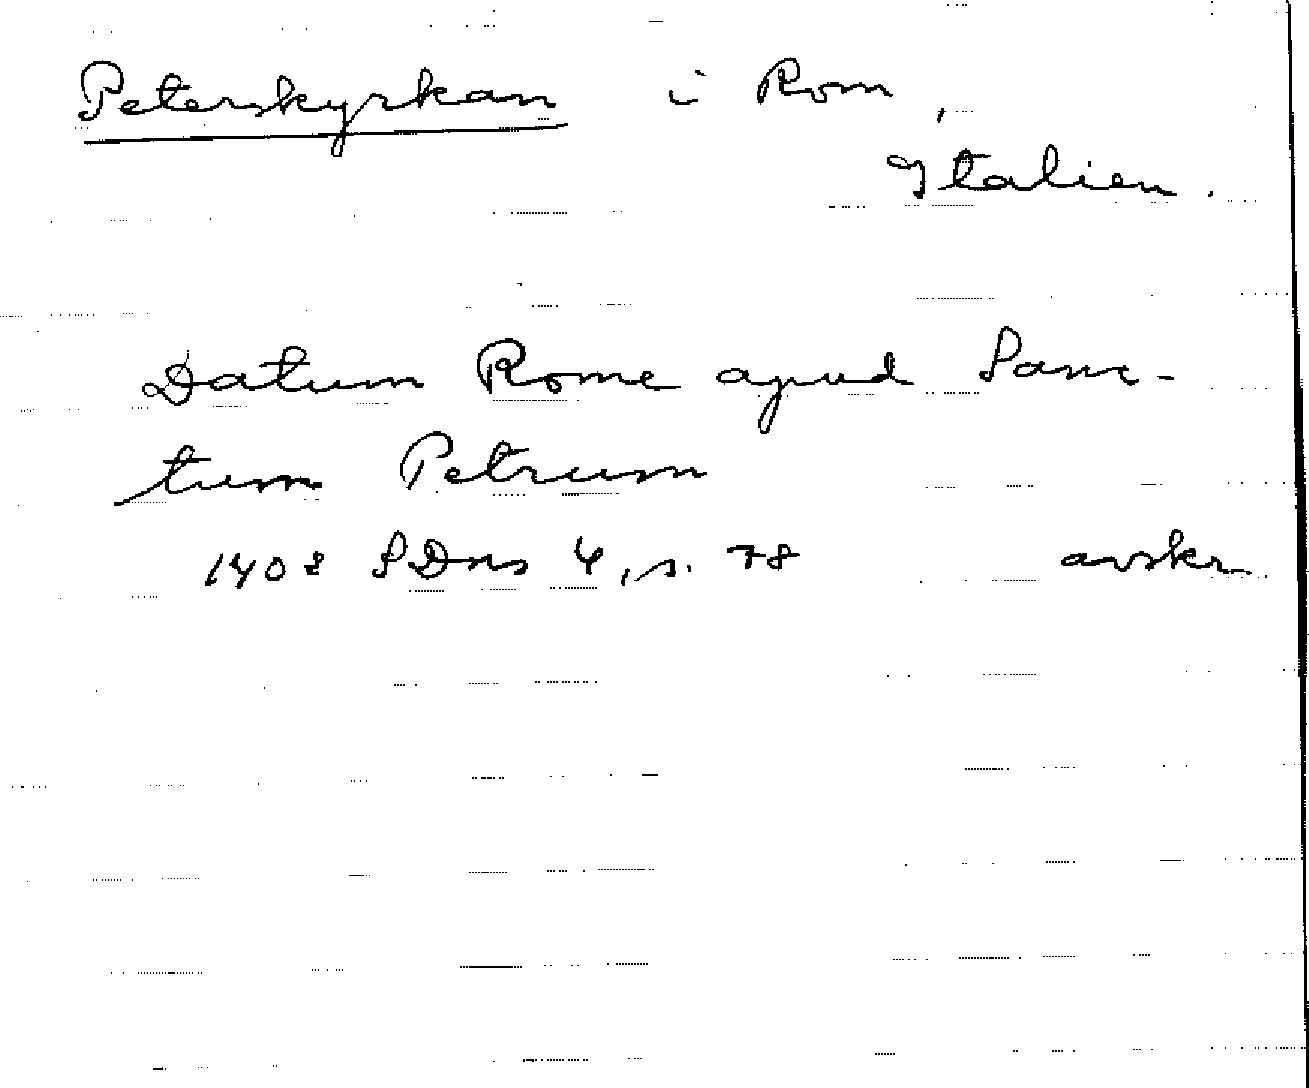 Peterskyrkan i Rom,
Italien.
Datum Rome apud Sanc-
tum Petrum
1408 SDns 4, s. 78 avskr.